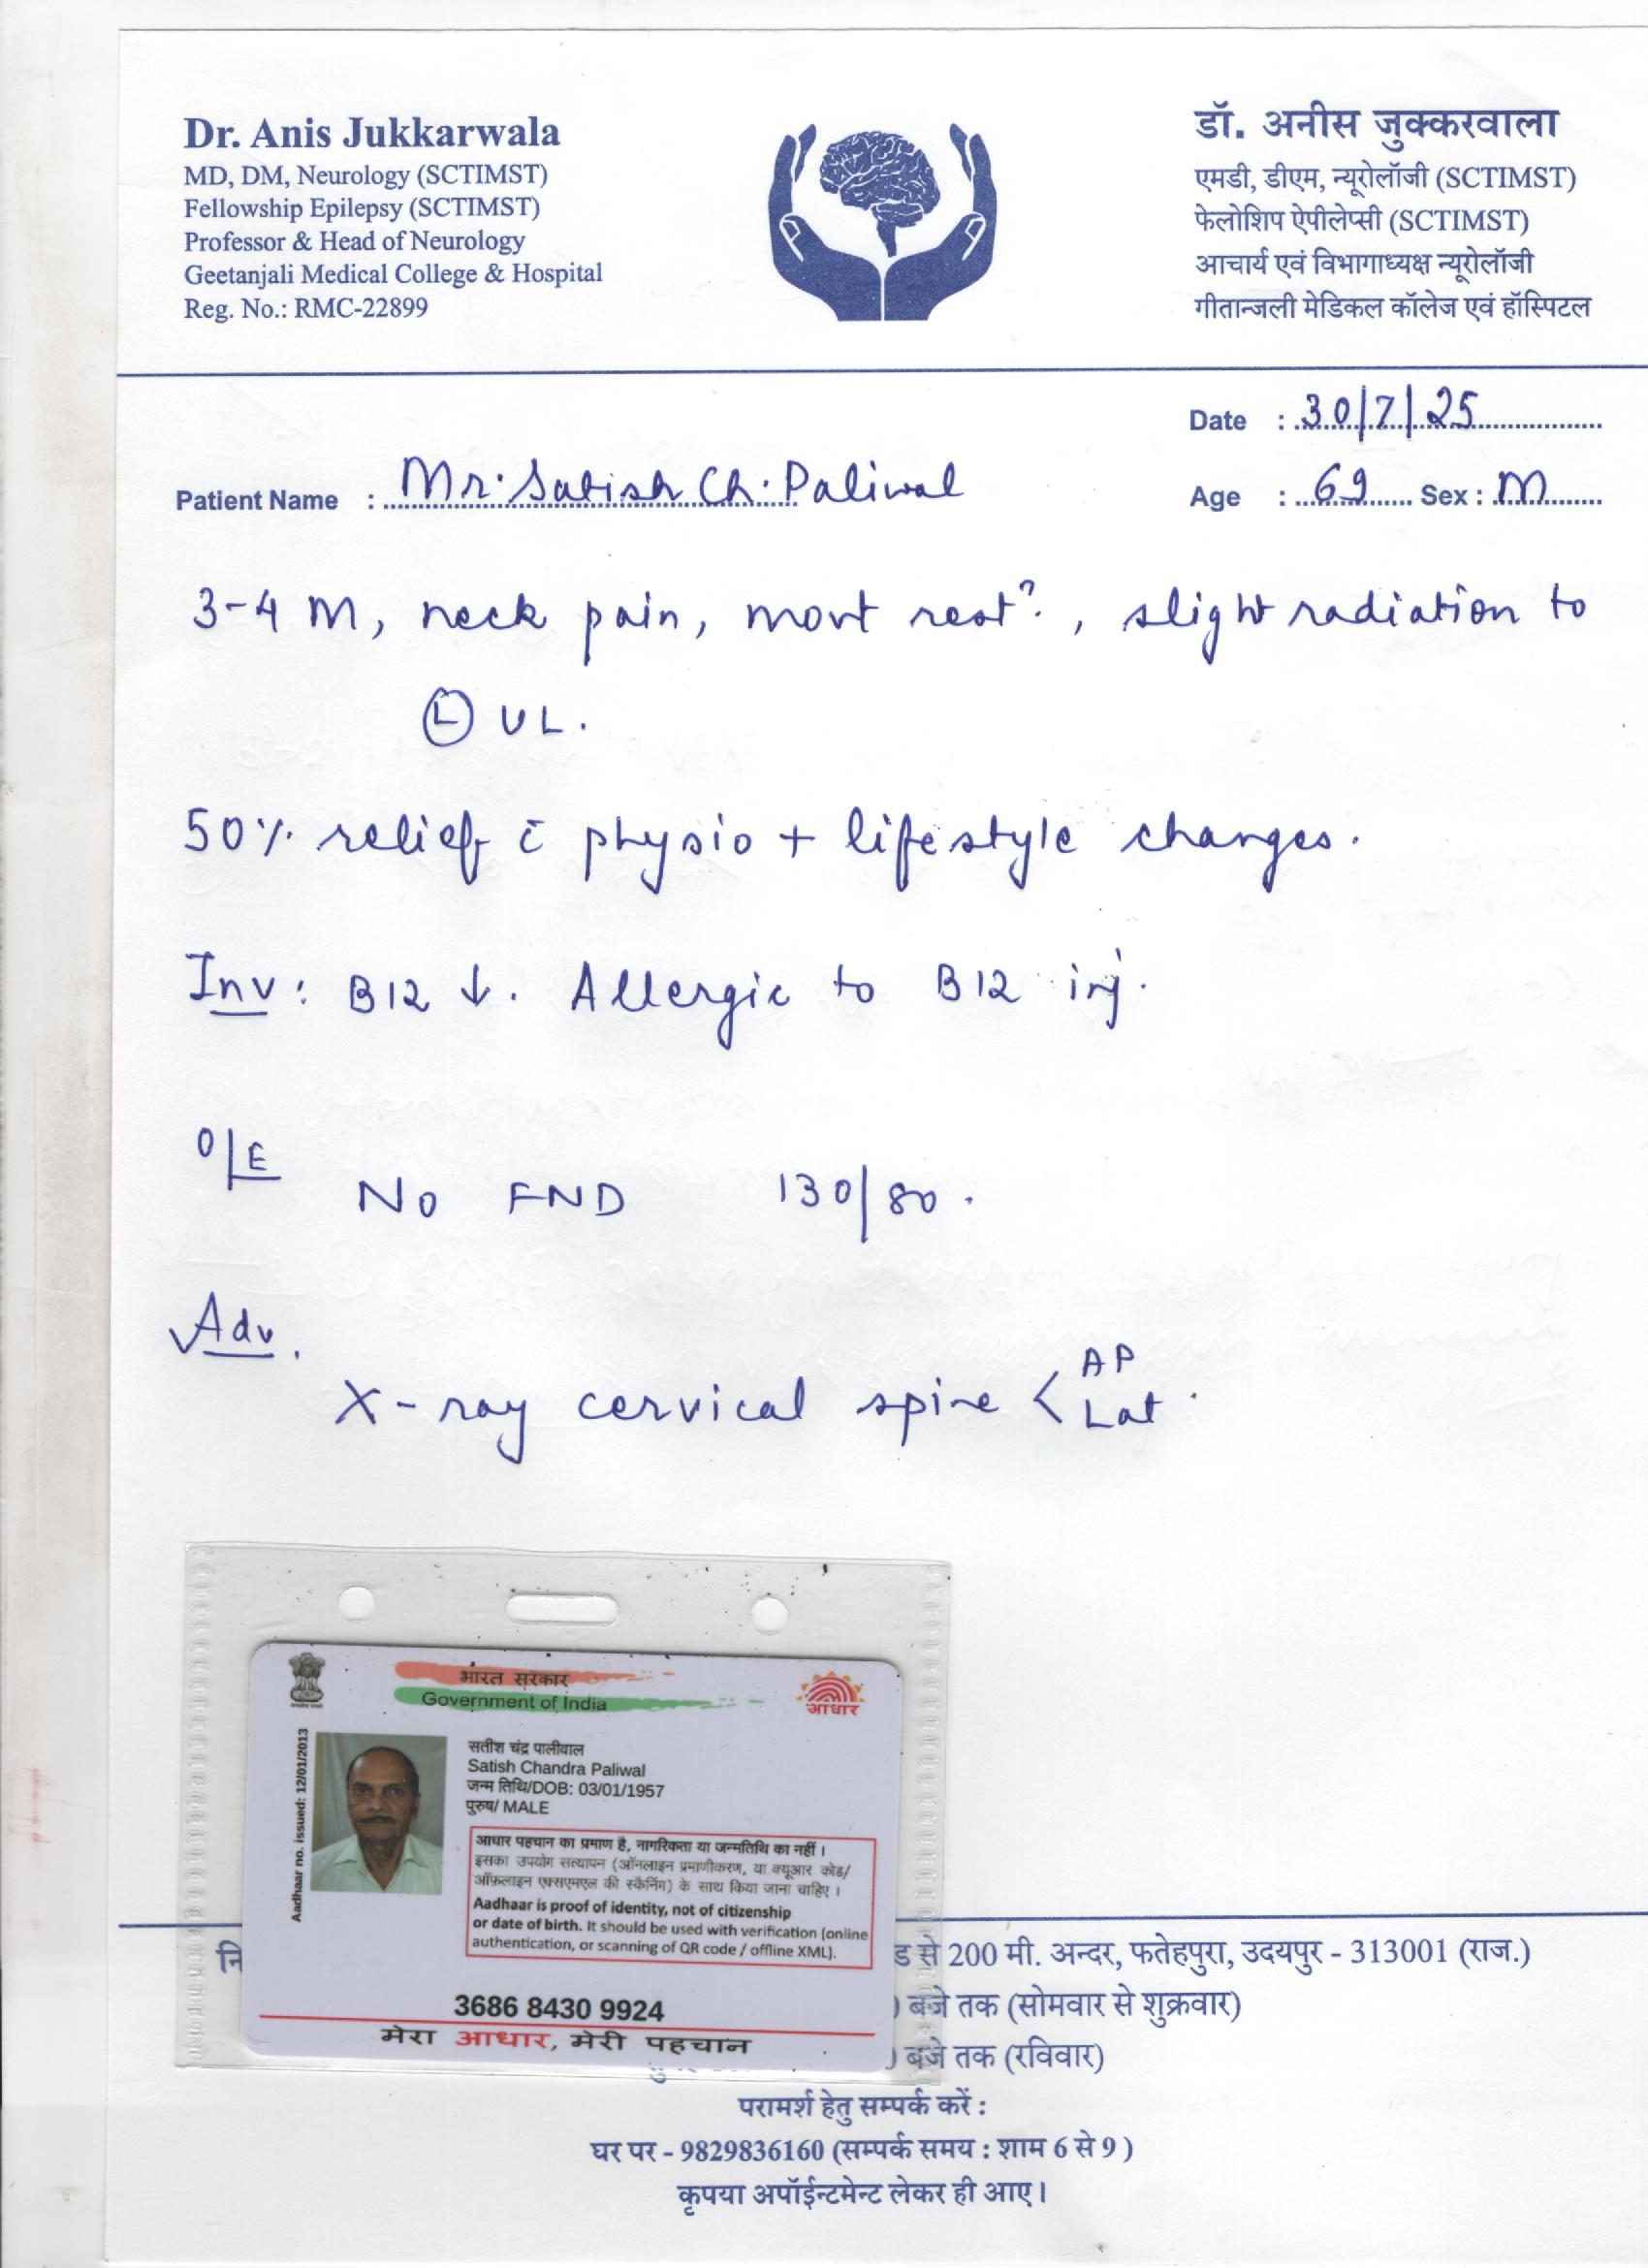 Dr. Anis Jukkarwala
MD, DM, Neurology (SCTIMST)
Fellowship Epilepsy (SCTIMST)
Professor & Head of Neurology
Geetanjali Medical College & Hospital
Reg. No.: RMC-22899
डॉ. अनीस जुक्करवाला
एमडी, डीएम, न्यूरोलॉजी (SCTIMST)
फेलोशिप ऐपीलेप्सी (SCTIMST)
आचार्य एवं विभागाध्यक्ष न्यूरोलॉजी
गीतान्जली मेडिकल कॉलेज एवं हॉस्पिटल
Date : 30/7/25
Patient Name : Mr. Satish Ch. Paliwal
Age : 69 Sex : M
3-4 M, neck pain, movt rest?, slight radiation to
(L) UL.
50% relief c̄ physio + lifestyle changes.
Inv: B12 ↓. Allergic to B12 inj.
O/E
No FND 130/80.
Adv.
X-ray cervical spine < AP
Lat.
भारत सरकार
Government of India
आधार
Aadhaar no. issued: 12/01/2013
सतीश चंद्र पालीवाल
Satish Chandra Paliwal
जन्म तिथि/DOB: 03/01/1957
पुरुष/ MALE
आधार पहचान का प्रमाण है, नागरिकता या जन्मतिथि का नहीं ।
इसका उपयोग सत्यापन (ऑनलाइन प्रमाणीकरण, या क्यूआर कोड/
ऑफ़लाइन एक्सएमएल की स्कैनिंग) के साथ किया जाना चाहिए ।
Aadhaar is proof of identity, not of citizenship
or date of birth. It should be used with verification (online
authentication, or scanning of QR code / offline XML).
3686 8430 9924
मेरा आधार, मेरी पहचान
से 200 मी. अन्दर, फतेहपुरा, उदयपुर - 313001 (राज.)
बजे तक (सोमवार से शुक्रवार)
बजे तक (रविवार)
परामर्श हेतु सम्पर्क करें :
घर पर - 9829836160 (सम्पर्क समय : शाम 6 से 9 )
कृपया अपॉईन्टमेन्ट लेकर ही आए।